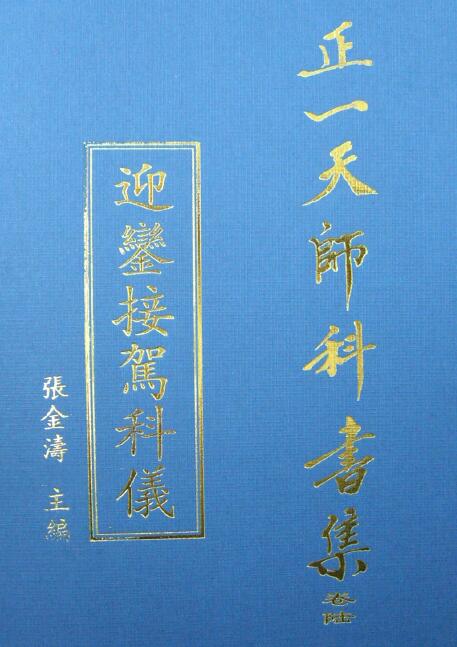 正一天師科書集
卷陸
迎鑾接駕科儀
張金濤 主編